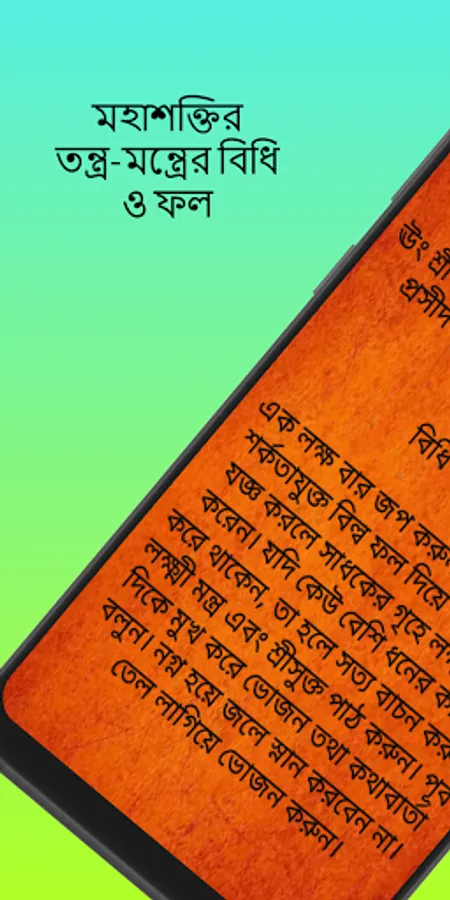 মহাশক্তির
তন্ত্র-মন্ত্রের বিধি
ও ফল
ঊং শ্রী
প্রসীদ
বিধি
এক লক্ষ বার জপ করুন
শর্কতাযুক্ত বিল্ব ফল দিয়ে
যজ্ঞ করলে সাধকের গৃহে
করেন। যদি কেউ বেশি ধনের
করে থাকেন, তা হলে সত্য বাচন
লক্ষ্মী মন্ত্র এবং শ্রীসুক্ত পাঠ করুন।
দিকে মুখ করে ভোজন তথা কথাবার্তা
বলুন। নগ্ন হয়ে জলে স্নান করবেন না।
তেল লাগিয়ে ভোজন করুন।